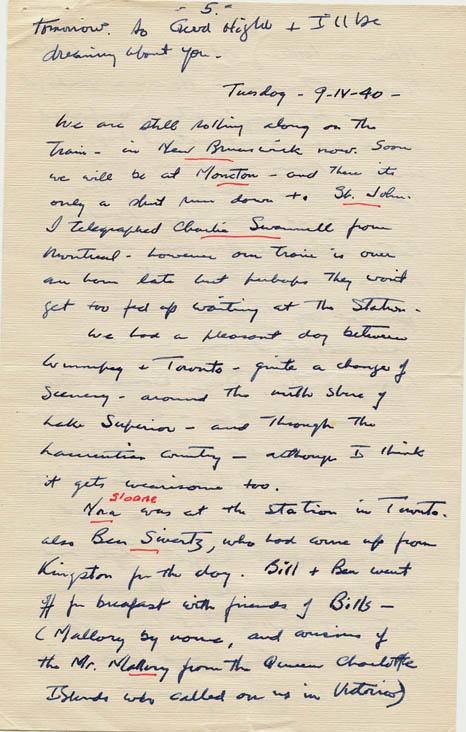 - 5. -
tomorrow. So Good Night + I'll be
dreaming about you -
Tuesday - 9-IV-40 -
We are still rolling along on the
train - in New Brunswick now. Soon
we will be at Moncton - and then its
only a short run down to St. John.
I telegraphed Charlie Swannell from
Montreal - however our train is over
an hour late but perhaps they won't
get too fed up waiting at the Station -
We had a pleasant day between
Winnipeg + Toronto - quite a change of
Scenery - around the north shore of
Lake Superior - and through the
Laurentian Country - although I think
it gets wearisome too.
Sloane
Nora was at the station in Toronto.
also Ben Swartz, who had come up from
Kingston for the day. Bill + Ben went
off for breakfast with friends of Bill's -
(Mallory by name, and cousins of
the Mr. Mallory from the Queen Charlotte
Islands who called on us in Victoria)